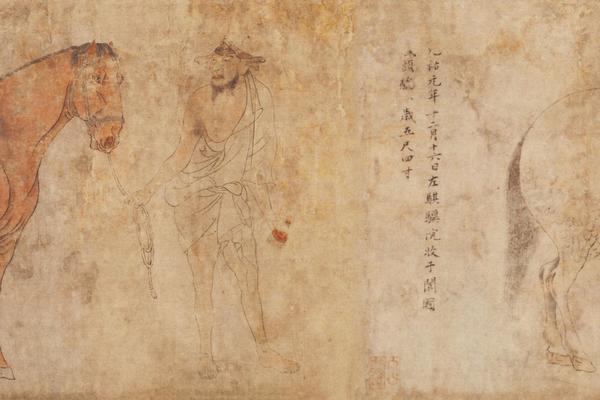 元祐元年十二月十六日左騏驥院收于闐國
頭驄八歲五尺四寸